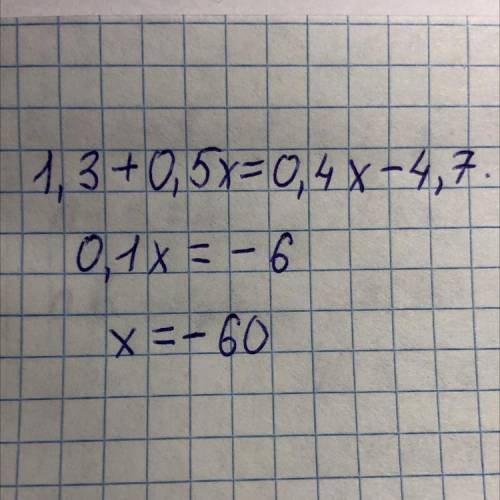 1,3+0,5x=0,4x-4,7.
0,1x=-6
x=-60